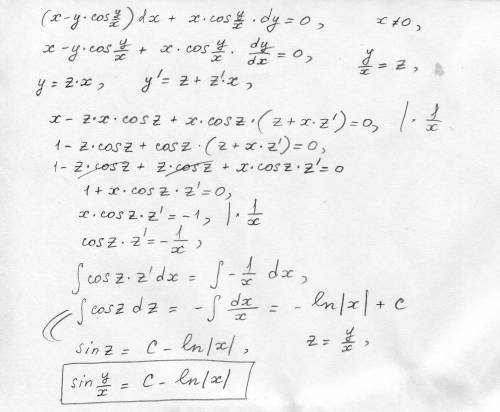 (x-y·cos y/x) dx + x·cos y/x · dy = 0, x ≠ 0,
x-y·cos y/x + x·cos y/x · dy/dx = 0, y/x = z,
y = z·x, y' = z + z'·x,
x - z·x·cosz + x·cosz·(z + x·z') = 0, |· 1/x
1 - z·cosz + cosz·(z + x·z') = 0,
1 - z·cosz + z·cosz + x·cosz·z' = 0
1 + x·cosz·z' = 0,
x·cosz·z' = -1, |· 1/x
cosz·z' = - 1/x,
∫ cosz·z' dx = ∫ - 1/x dx,
∫ cosz dz = - ∫ dx/x = - ln|x| + c
sinz = C - ln|x|, z = y/x,
sin y/x = C - ln|x|